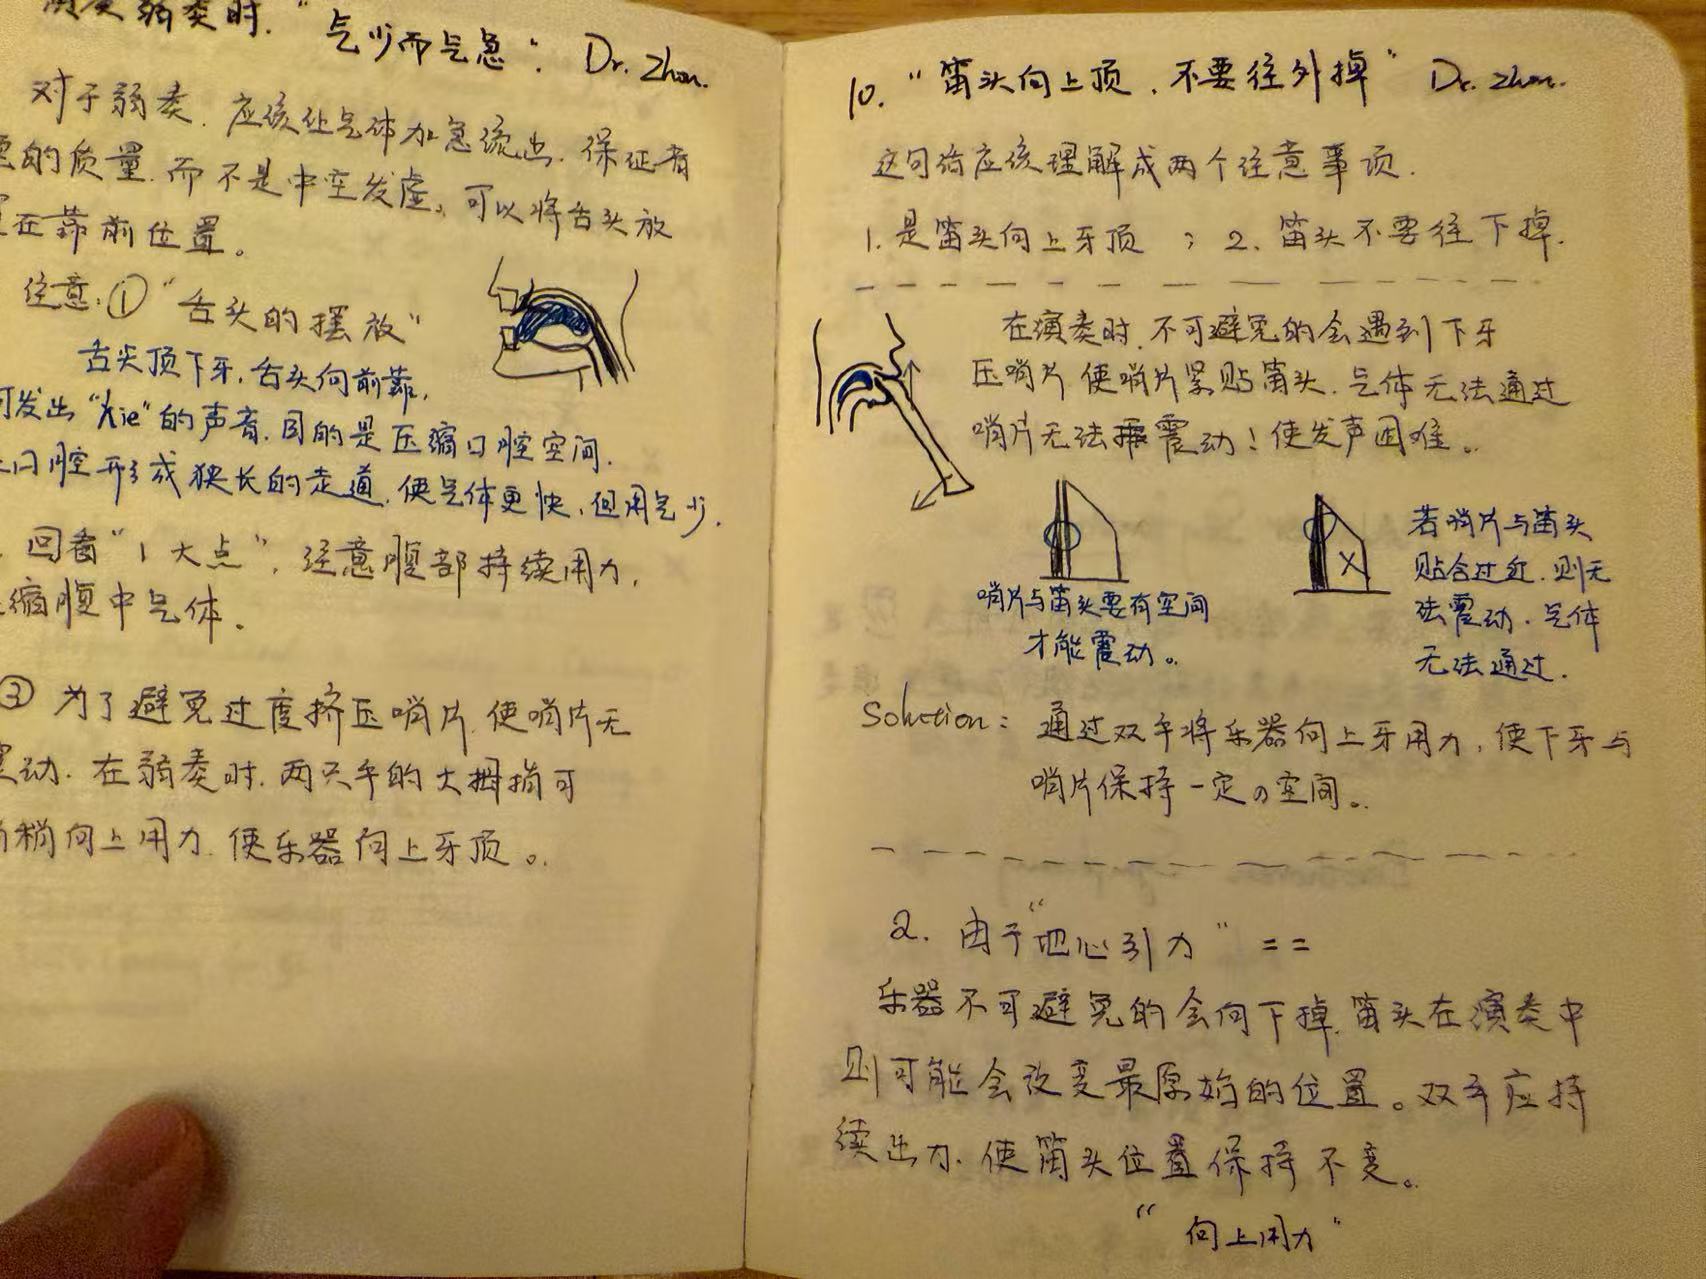 演奏弱奏时.“气少而气急”. Dr. Zhou.
对于弱奏.应该让气体加急流出.保证音
的质量.而不是中空发虚,可以将舌头放
在靠前位置。
注意:①“舌头的摆放”
舌尖顶下牙,舌头向前靠,
可发出“xie”的声音.目的是压缩口腔空间.
口腔形成狭长的走道.使气体更快,但用气少.
回看“1大点”,注意腹部持续用力,
缩腹中气体.
③为了避免过度挤压哨片.使哨片无
震动.在弱奏时.两只手的大拇指可
稍向上用力.使乐器向上牙顶。
10.“笛头向上顶.不要往外掉” Dr. Zhou.
这句话应该理解成两个注意事项.
1.是笛头向上牙顶;2.笛头不要往下掉.
在演奏时.不可避免的会遇到下牙
压哨片.使哨片紧贴笛头.气体无法通过
哨片无法震动!使发声困难。
哨片与笛头要有空间
才能震动。
若哨片与笛头
贴合过近.则无
法震动.气体
无法通过.
Solution:通过双手将乐器向上牙用力,使下牙与
哨片保持一定の空间。
2.由于“地心引力”==
乐器不可避免的会向下掉.笛头在演奏中
则可能会改变最原始的位置。双手应持
续出力.使笛头位置保持不变。
“向上用力”